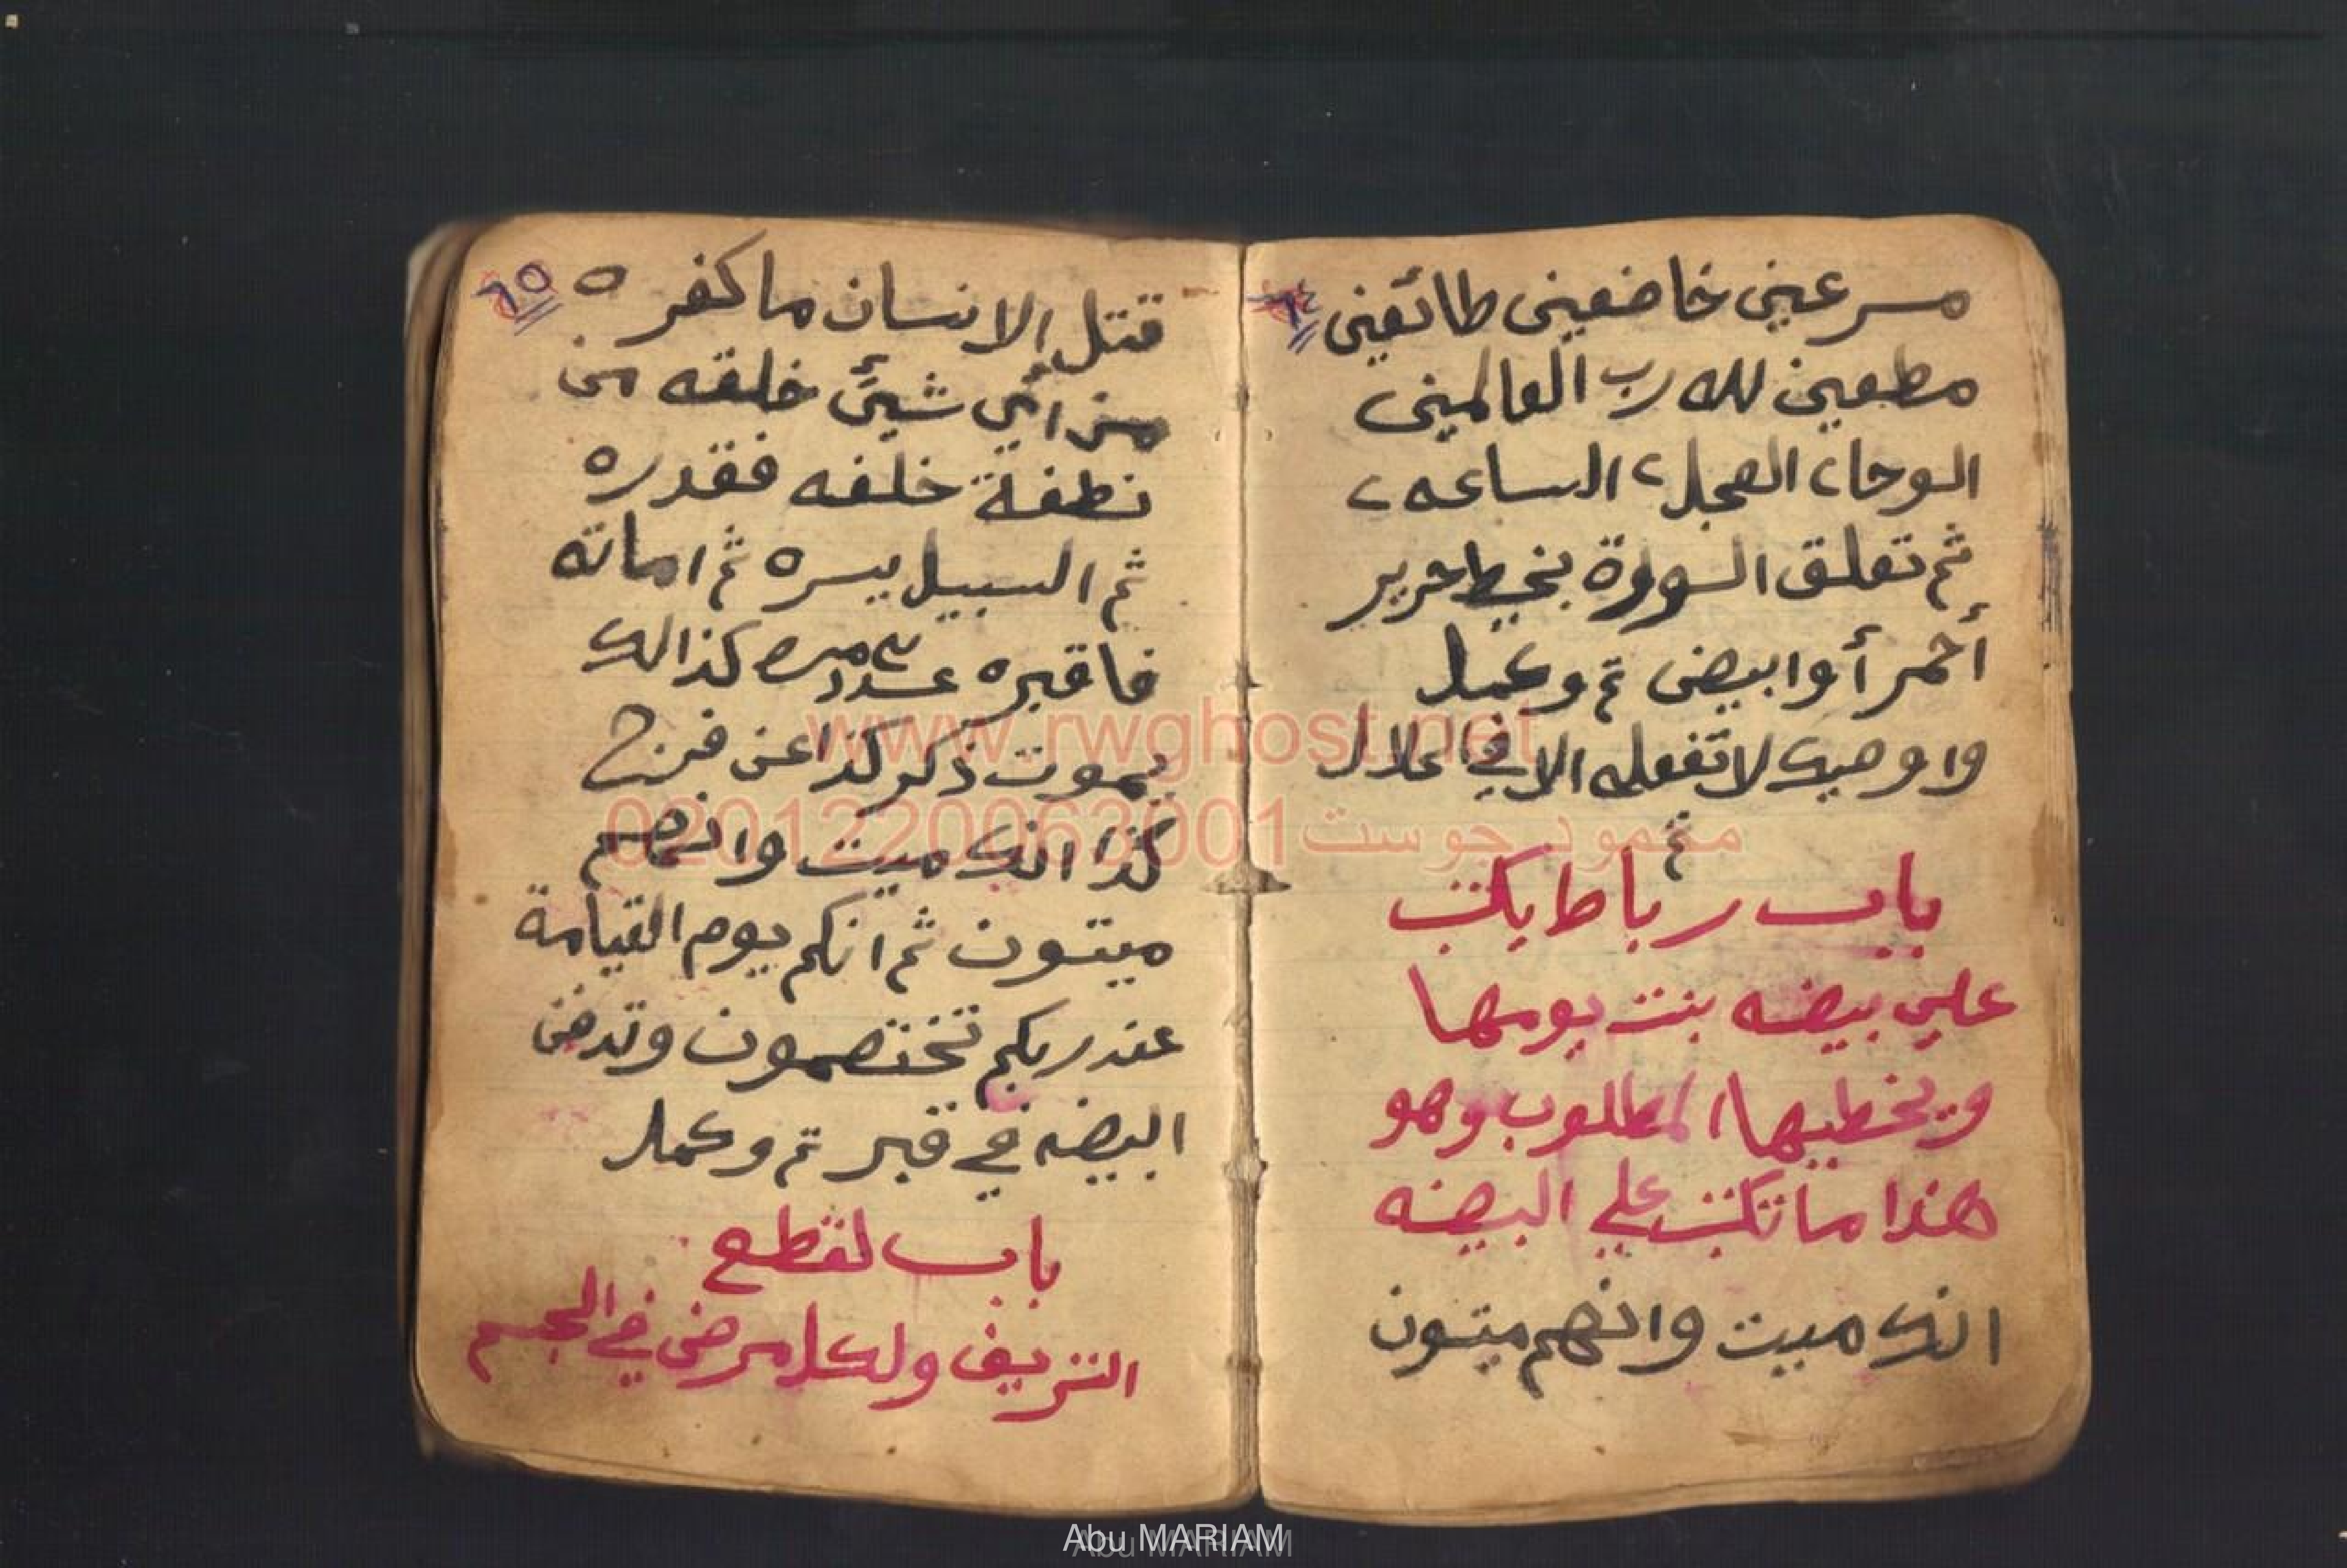 ٦٤
مسرعين خاضعين طائعين
مطعين لله رب العالمين ٢
الوحا ٢ العجل ٢ الساعه ٢
ثم تعلق السورة بخيط حرير
أحمر أوابيض تم وعمل
واوصيك لاتفعله الا في حلال
تم
باب رباط يكتب
علي بيضه بنت يومها
ويخطيها المطلوب وهو
هذا ما تكتب علي البيضه
انك ميت وانهم ميتون
٦٥
قتل الانسان ما كفره
من أي شيئ خلقه من
نطفة خلقه فقدره
ثم السبيل يسره ثم اماته
فاقبره عدد مره كذالك
يموت ذكر كذا عن فرج
كذا انك ميت وانهم
ميتون ثم انكم يوم القيامة
عند ربكم تختصمون وتدفن
البيضه في قبر تم وكمل
باب لقطع
النزيف ولكل مرض في الجسم
www.rwghost.net
محمود جوست 0201220063001
Abu MARIAM